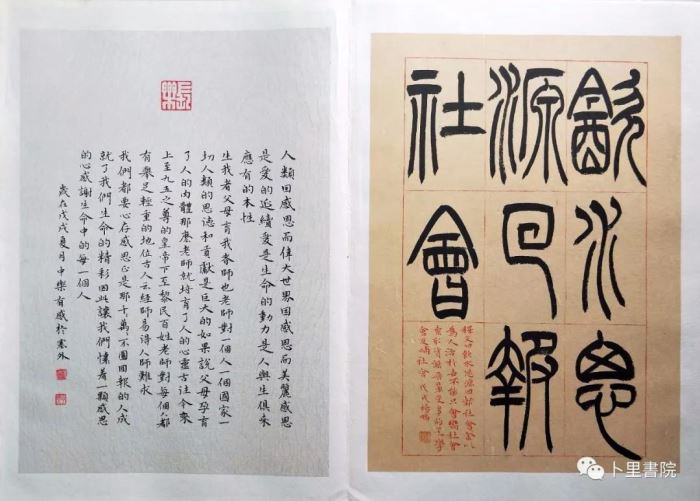 飲水思
源回報
社會
釋文曰飲水思源回報社會余以
為人活於世不能只會向社會
會反哺社會戊戌
長樂
人類因感恩而偉大世界因感恩而美麗感恩
是愛的延續愛是生命的動力是人與生俱來
應有的本性
生我者父母育我者師也老師對一個人一個國家一
切人類的恩德和貢獻是巨大的如果說父母孕育
了人的肉體那麼老師就培育了人的心靈古往今來
上至九五之尊的皇帝下至黎民百姓老師對每個人都
有舉足輕重的地位古人云經師易得人師難求
我們都要心存感恩正是那千萬不圖回報的人成
就了我們生命的精彩因此讓我們懷著一顆感恩
的心感謝生命中的每一個人
歲在戊戌夏月中樂有感於塞外
卜里書院